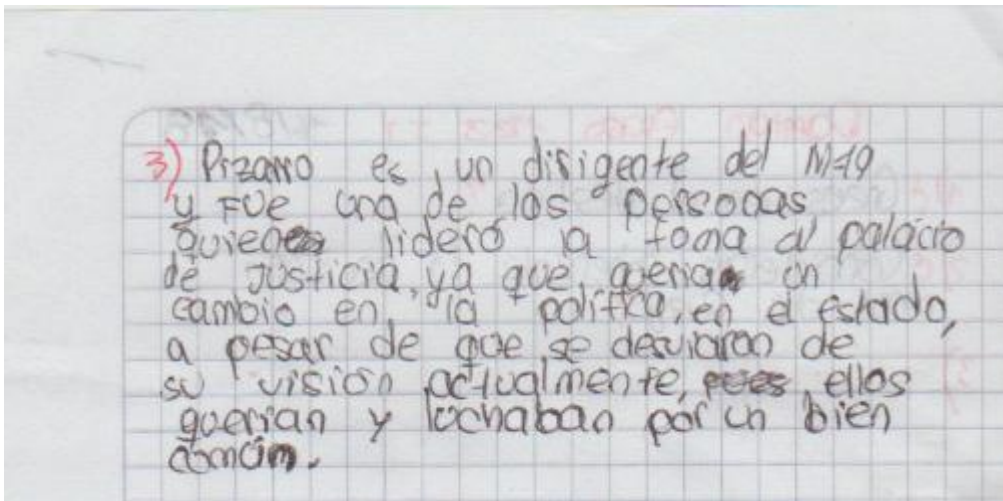 3) Pizarro es un dirigente del M-19
y FUE una de las personas
quien lideró la toma al palacio
de Justicia, ya que, queria un
cambio en la política, en el Estado,
a pesar de que se desviaron de
su visión actualmente, ellos
querian y luchaban por un bien
común.